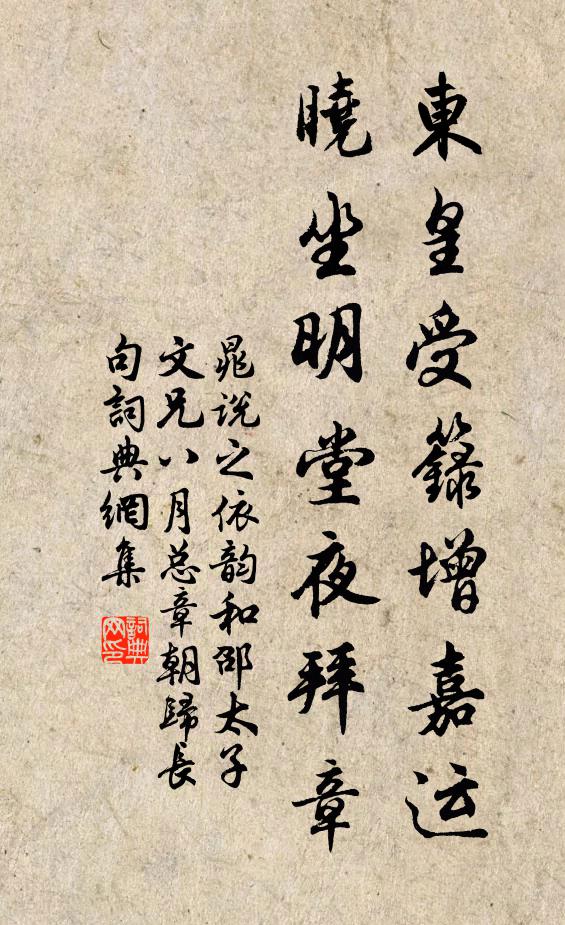 東皇受籙增嘉运
曉坐明堂夜拜章
晁说之依韵和邵太子
文兄八月总章朝歸長
句詞典網集
詞典網印